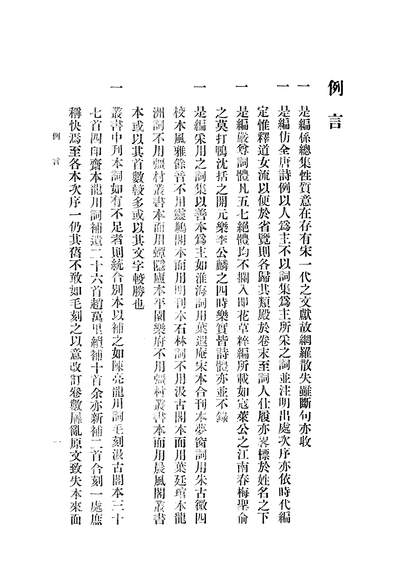 例言
一 是編係總集性質意在存有宋一代之文獻故網羅散失雖斷句亦收
一 是編仿全唐詩例以人爲主不以詞集爲主所采之詞並注明出處次序亦依時代編
定惟釋道女流以便於省覽則各歸其類殿於卷末至詞人仕履亦畧標於姓名之下
一 是編嚴尊詞體凡五七絕體均不闌入即花草粹編所載如寇萊公之江南春梅聖俞
之莫打鴨沈括之開元樂李公麟之四時樂實皆詩體亦並不錄
一 是編采用之詞集以善本爲主如淮海詞用葉遐庵宋本合刊本夢窗詞用朱古微四
校本風雅餘音不用靈鶼閣本而用明刊本石林詞不用汲古閣本而用葉廷琯本龍
洲詞不用彊村叢書本而用蟫隱廬本平園樂府不用彊村叢書本而用晨風閣叢書
本或以其首數較多或以其文字較勝也
一 叢書中刋本詞如有不足者則統合別本以補之如陳亮龍川詞毛刻汲古閣本三十
七首四印齋本龍川詞補遺二十六首趙萬里續補十首余亦新補二首合刻一處庶
稱快焉至各本次序一仍其舊不敢如毛刻之以意改訂卷數羼亂原文致失本來面
例言
一